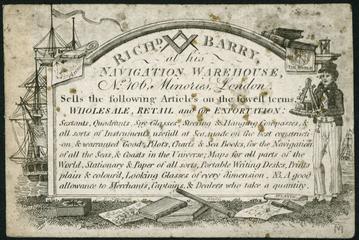 RICHD. BARRY,
at his
NAVIGATION WAREHOUSE,
No. 106, Minories, London.
Sells the following Articles on the lowest terms
WHOLESALE, RETAIL and for EXPORTATION:
Sextants, Quadrants, Spy Glasses, Steering & Hanging Compasses, &
all sorts of Instruments useful at Sea, made on the best constructi-
on, & warranted Good; Pilots, Charts & Sea Books, for the Navigation
of all the Seas, & Coasts in the Universe; Maps for all parts of the
World, Stationary & Paper of all sorts, Portable Writing Desks, Prints
plain & colour'd, Looking Glasses of every dimension, &c. A good
allowance to Merchants, Captains, & Dealers who take a quantity.